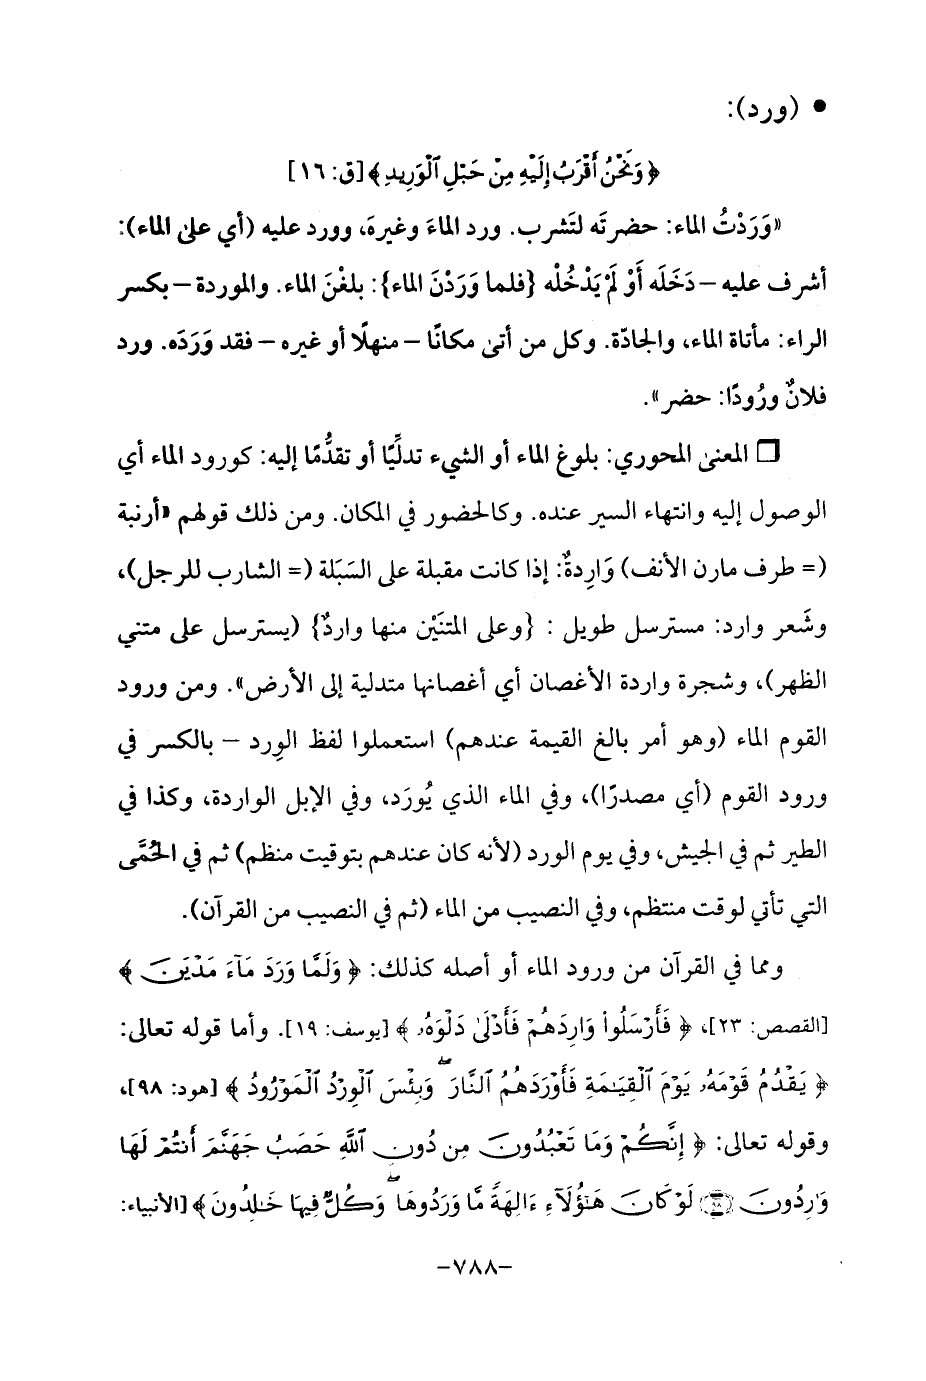 • (ورد):
﴿وَنَحْنُ أَقْرَبُ إِلَيْهِ مِنْ حَبْلِ ٱلْوَرِيدِ﴾ [ق: ١٦]
«وَرَدْتُ الماء: حضرتَه لتَشرب. ورد الماءَ وغيرهَ، وورد عليه (أي على الماء):
أشرف عليه – دَخَلَه أَوْ لَمْ يَدْخُلْه {فلما وَرَدْنَ الماء}: بلغْنَ الماء. والموردة – بكسر
الراء: مأتاة الماء، والجادّة. وكل من أتى مكانًا – منهلًا أو غيره – فقد وَرَدَه. ورد
فلانٌ ورُودًا: حضر».
❒ المعنى المحوري: بلوغ الماء أو الشيء تدلِّيًا أو تقدُّمًا إليه: كورود الماء أي
الوصول إليه وانتهاء السير عنده. وكالحضور في المكان. ومن ذلك قولهم «أرنبة
(= طرف مارن الأنف) وَارِدةٌ: إذا كانت مقبلة على السَبَلة (= الشارب للرجل)،
وشَعر وارد: مسترسل طويل : {وعلى المتنَيْن منها واردٌ} (يسترسل على متني
الظهر)، وشجرة واردة الأغصان أي أغصانها متدلية إلى الأرض». ومن ورود
القوم الماء (وهو أمر بالغ القيمة عندهم) استعملوا لفظ الوِرد – بالكسر في
ورود القوم (أي مصدرًا)، وفي الماء الذي يُورَد، وفي الإبل الواردة، وكذا في
الطير ثم في الجيش، وفي يوم الورد (لأنه كان عندهم بتوقيت منظم) ثم في الحُمَّى
التي تأتي لوقت منتظم، وفي النصيب من الماء (ثم في النصيب من القرآن).
ومما في القرآن من ورود الماء أو أصله كذلك: ﴿ وَلَمَّا وَرَدَ مَآءَ مَدْيَنَ ﴾
[القصص: ٢٣]، ﴿ فَأَرْسَلُوا۟ وَارِدَهُمْ فَأَدْلَىٰ دَلْوَهُۥ ﴾ [يوسف: ١٩]. وأما قوله تعالى:
﴿ يَقْدُمُ قَوْمَهُۥ يَوْمَ ٱلْقِيَـٰمَةِ فَأَوْرَدَهُمُ ٱلنَّارَ ۖ وَبِئْسَ ٱلْوِرْدُ ٱلْمَوْرُودُ ﴾ [هود: ٩٨]،
وقوله تعالى: ﴿ إِنَّكُمْ وَمَا تَعْبُدُونَ مِن دُونِ ٱللَّهِ حَصَبُ جَهَنَّمَ أَنتُمْ لَهَا
وَٰرِدُونَ ۝٩٨ لَوْ كَانَ هَـٰٓؤُلَآءِ ءَالِهَةً مَّا وَرَدُوهَا ۖ وَكُلٌّ فِيهَا خَـٰلِدُونَ ﴾ [الأنبياء:
-٧٨٨-